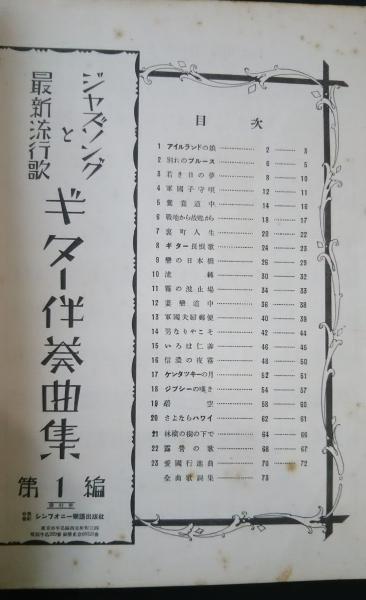 ジャズソング
と
最新流行歌
ギター伴奏曲集
第1編
シンフオニー樂譜出版社
目次
1 アイルランドの娘 2 3
2 別れのブルース 6 5
3 若き日の夢 8 10
4 軍國子守唄 12 11
5 鴛鴦道中 14 16
6 戰地から故郷から 18 17
7 裏町人生 20 22
8 ギター長恨歌 24 23
9 戀の日本橋 26 29
10 流轉 30 32
11 霧の波止場 34 33
12 妻戀道中 36 38
13 軍國夫婦郵便 40 39
14 男なりやこそ 42 44
15 いろは仁義 46 45
16 信濃の夜霧 48 50
17 ケンタツキーの月 52 51
18 ジプシーの嘆き 54 57
19 空 58 60
20 さよならハワイ 62 61
21 林檎の樹の下で 64 66
22 露營の歌 68 67
23 愛國行進曲 70 72
全曲歌詞集 73